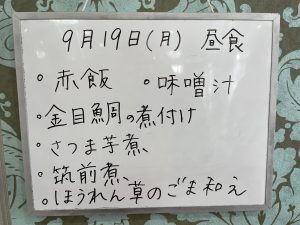 9月19日(月) 昼食
・赤飯 ・味噌汁
・金目鯛の煮付け
・さつま芋煮、
・筑前煮、
・ほうれん草のごま和え